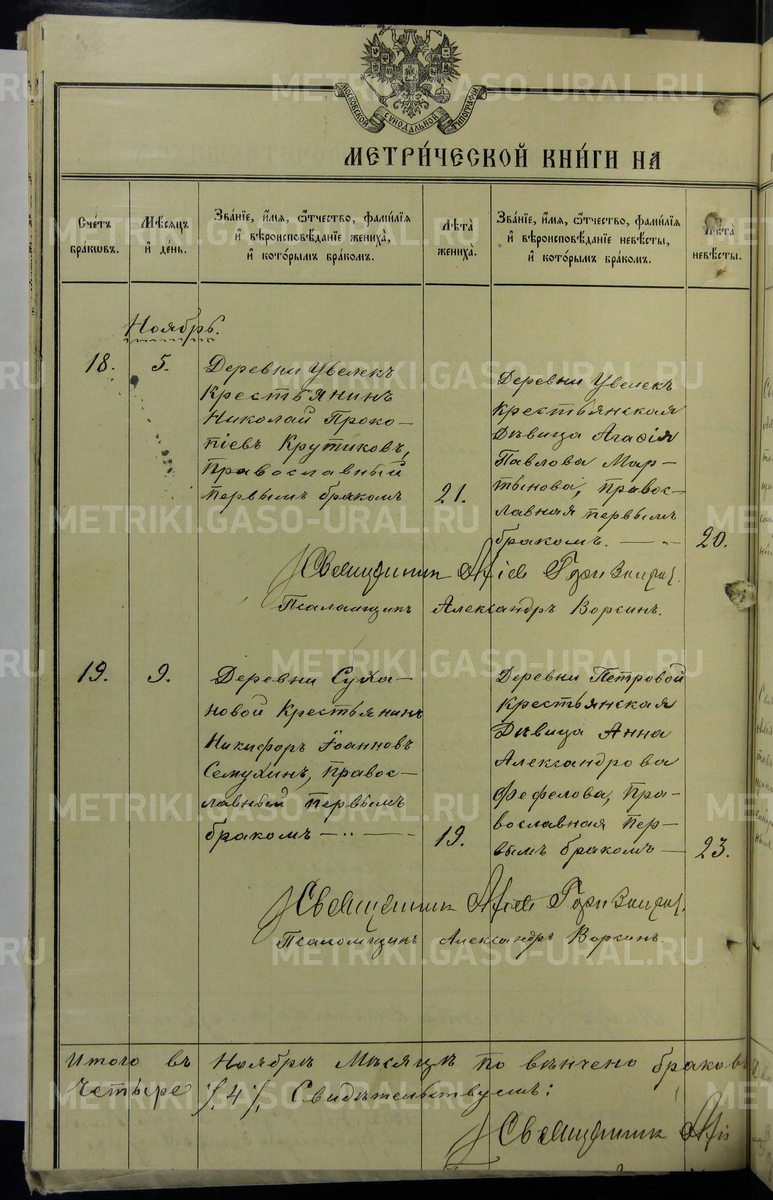 METRIKI.GASO-URAL.RU
МОСКОВСКОЙ СѴНОДАЛЬНОЙ ТИПОГРАФІИ
МЕТРИ́ЧЕСКОЙ КНИ́ГИ НА
Счетъ браковъ.
Мѣсяцъ и день.
Званіе, имя, отчество, фамилія
и вѣроисповѣданіе жениха,
и которымъ бракомъ.
Лѣта жениха.
Званіе, имя, отчество, фамилія
и вѣроисповѣданіе невѣсты,
и которымъ бракомъ.
Лѣта невѣсты.
Ноябрь.
18.
5.
Деревни Увелек
Крестьянинъ
Николай Проко-
піевъ Крутиковъ,
Православный
первымъ бракомъ
21.
Деревни Увелек
Крестьянская
Дѣвица Агафія
Павлова Мар-
тынова, правос-
лавная первымъ
бракомъ.
20.
Священник
Псаломщикъ Александръ Воргинъ.
19.
9.
Деревни Суха-
новой Крестьянинъ
Никифоръ Іоанновъ
Семухинъ, правос-
лавный первымъ
бракомъ
19.
Деревни Петровой
Крестьянская
Дѣвица Анна
Александрова
Фефелова, пра-
вославная пер-
вымъ бракомъ
23.
Священник
Псаломщикъ Александръ Воргинъ.
Итого въ Ноябрѣ Мѣсяцѣ по вѣнчено браковъ
Четыре /.4/. Свидѣтельствуемъ:
Священник